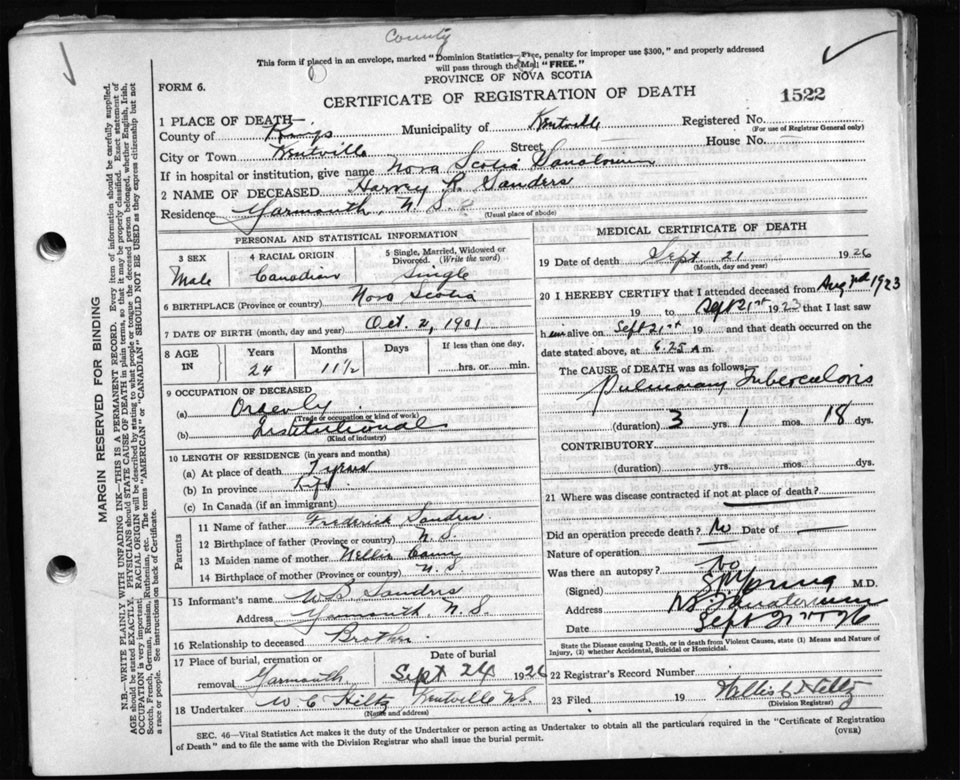 County
This form if placed in an envelope, marked "Dominion Statistics—Free, penalty for improper use $300," and properly addressed
will pass through the Mail "FREE."
PROVINCE OF NOVA SCOTIA
FORM 6.
CERTIFICATE OF REGISTRATION OF DEATH
1522
1 PLACE OF DEATH—
County of Kings Municipality of Kentville Registered No.
(For use of Registrar General only)
City or Town Kentville Street House No.
If in hospital or institution, give name Nova Scotia Sanatorium
2 NAME OF DECEASED Harvey R. Sanders
Residence Yarmouth, N. S.
(Usual place of abode)
PERSONAL AND STATISTICAL INFORMATION
3 SEX 4 RACIAL ORIGIN 5 Single, Married, Widowed or Divorced. (Write the word)
Male Canadian Single
6 BIRTHPLACE (Province or country) Nova Scotia
7 DATE OF BIRTH (month, day and year) Oct. 2, 1901
8 AGE IN Years Months Days If less than one day.
24 11½ hrs. or min.
9 OCCUPATION OF DECEASED
(a) Orderly
(Trade or occupation or kind of work)
(b) Institutional
(Kind of industry)
10 LENGTH OF RESIDENCE (in years and months)
(a) At place of death
(b) In province Life
(c) In Canada (if an immigrant)
Parents
11 Name of father Frederick Sanders
12 Birthplace of father (Province or country) N. S.
13 Maiden name of mother Nellie Cann
14 Birthplace of mother (Province or country) N. S.
15 Informant's name Sanders
Address Yarmouth, N. S.
16 Relationship to deceased Brother.
17 Place of burial, cremation or removal Yarmouth Date of burial Sept 24 1926
18 Undertaker W C Hiltz Kentville N.S.
(Name and address)
MEDICAL CERTIFICATE OF DEATH
19 Date of death Sept 21 1926
(Month, day and year)
20 I HEREBY CERTIFY that I attended deceased from Aug 1923
19 to Sept 21st 1923 that I last saw
him alive on Sept 21st 19 and that death occurred on the
date stated above, at 6.25 a m.
The CAUSE OF DEATH was as follows:
Pulmonary Tuberculosis
(duration) 3 yrs. 1 mos. 18 dys.
CONTRIBUTORY.
(duration) yrs. mos. dys.
21 Where was disease contracted if not at place of death?
Did an operation precede death? No Date of
Nature of operation
Was there an autopsy? No
(Signed) Young M.D.
Address N.S. Sanatorium
Date Sept 21st 26
State the Disease causing Death, or in death from Violent Causes, state (1) Means and Nature of
Injury, (2) whether Accidental, Suicidal or Homicidal.
22 Registrar's Record Number
23 Filed 19 Hiltz
(Division Registrar)
SEC. 46—Vital Statistics Act makes it the duty of the Undertaker or person acting as Undertaker to obtain all the particulars required in the "Certificate of Registration
of Death" and to file the same with the Division Registrar who shall issue the burial permit.
(OVER)
MARGIN RESERVED FOR BINDING
N.B.—WRITE PLAINLY WITH UNFADING INK—THIS IS A PERMANENT RECORD. Every item of information should be carefully supplied.
AGE should be stated EXACTLY. PHYSICIANS should STATE CAUSE OF DEATH in plain terms, so that it may be properly classified. Exact statement of
OCCUPATION is very important. RACIAL ORIGIN will be described by stating to what people or tongue the deceased person belonged, whether English, Irish,
Scotch, French, German, Russian, Ruthenian, etc. The terms "AMERICAN" or "CANADIAN" SHOULD NOT BE USED as they express citizenship but not
a race or people. See instructions on back of Certificate.